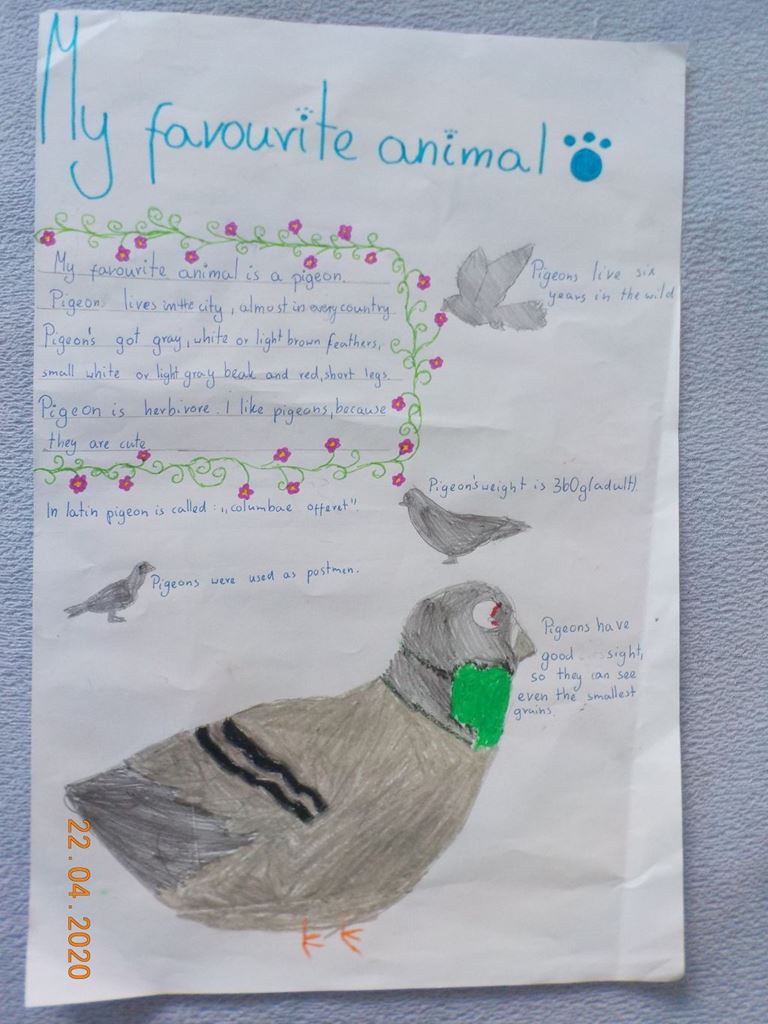 My favourite animal
My favourite animal is a pigeon.
Pigeon lives in the city, almost in every country.
Pigeon's got gray, white or light brown feathers,
small white or light gray beak and red, short legs.
Pigeon is herbivore. I like pigeons, because
they are cute
Pigeons live six
years in the wild
In latin pigeon is called: „columbae offeret".
Pigeon's weight is 360g(adult).
Pigeons were used as postmen.
Pigeons have
good sight,
so they can see
even the smallest
grains.
22.04.2020